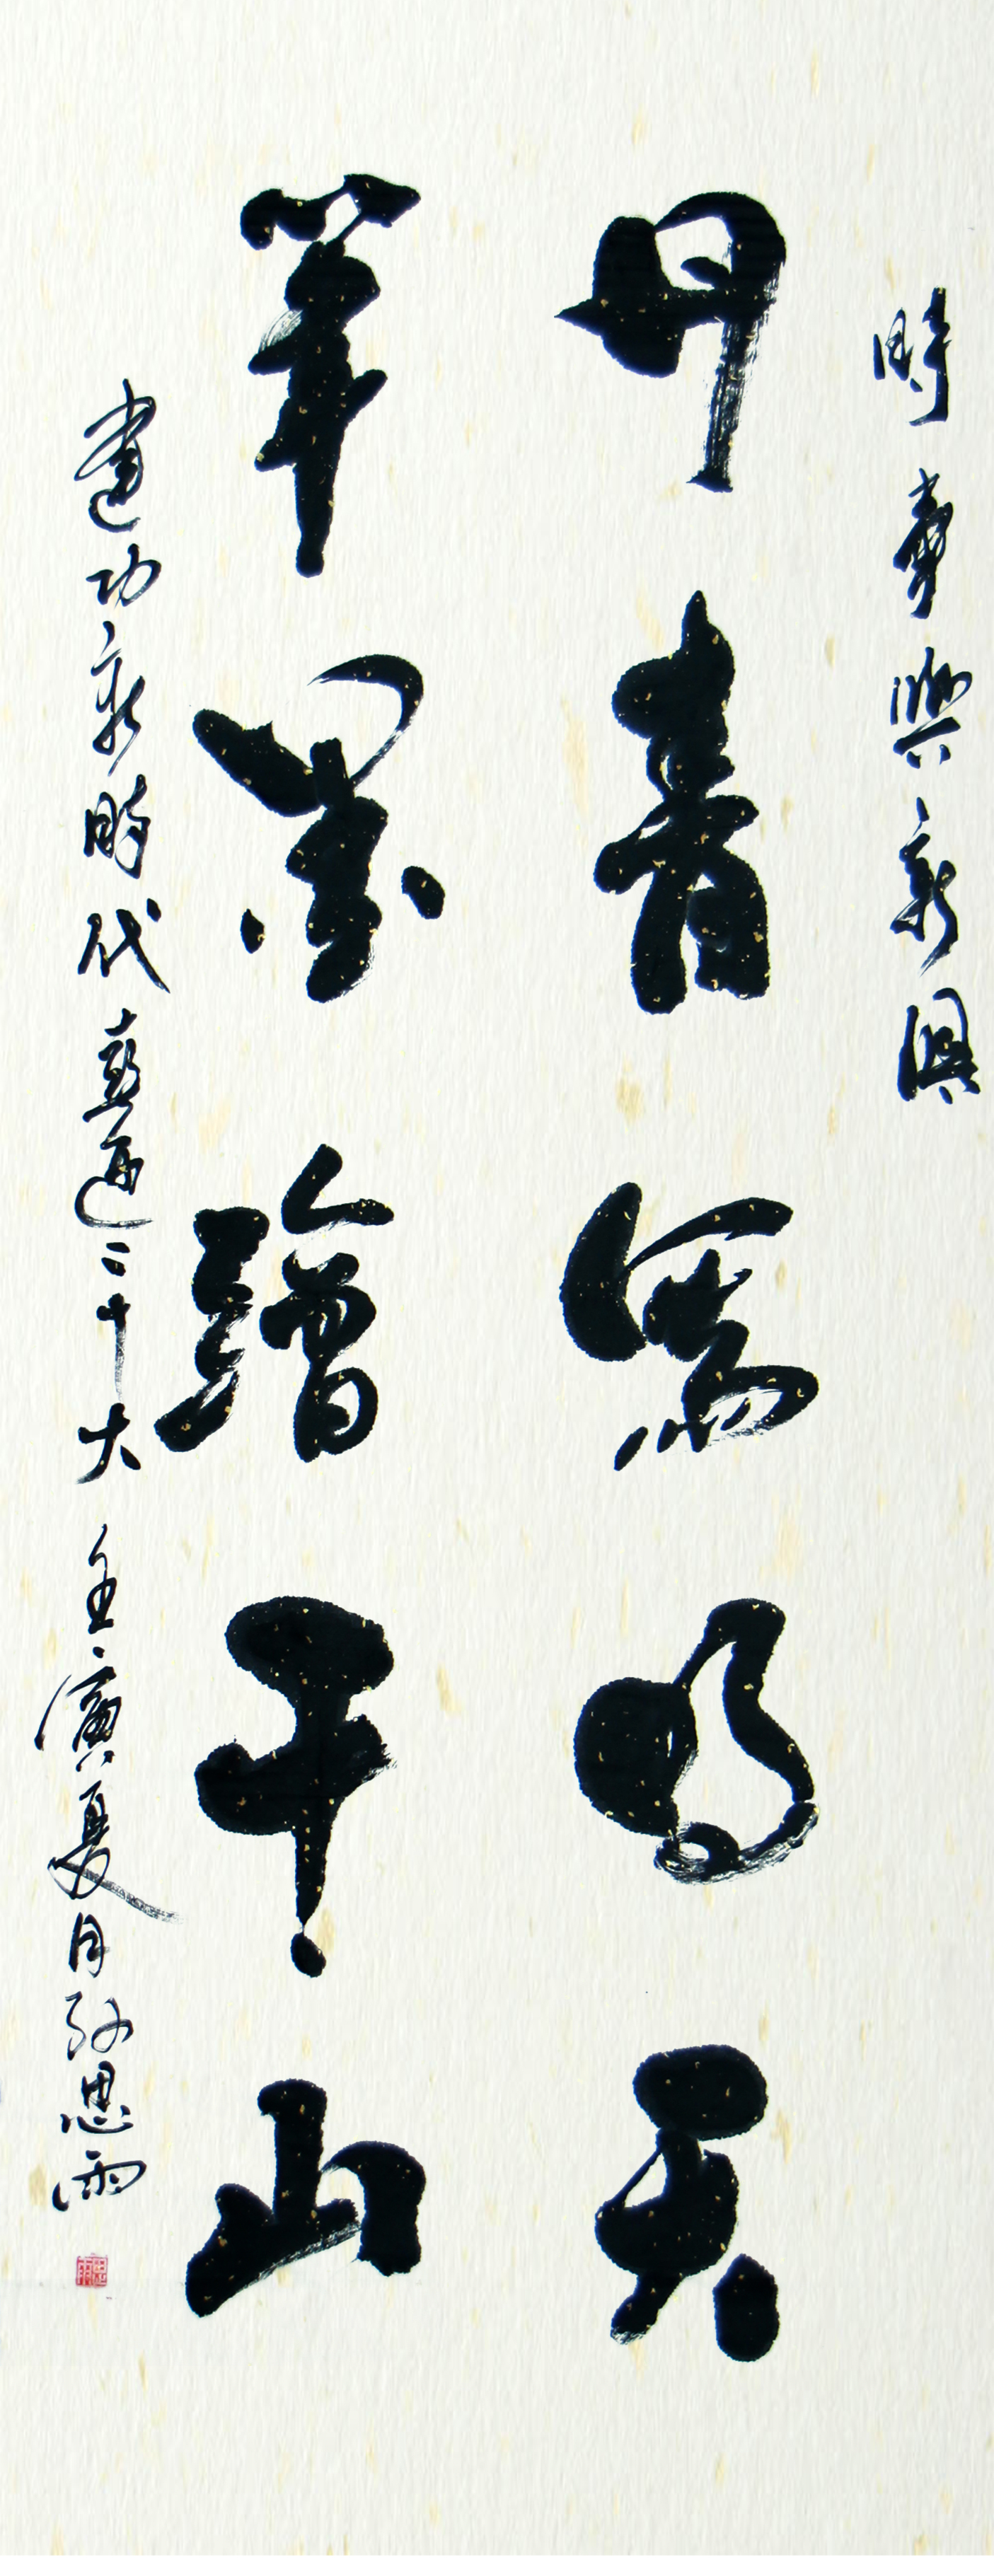 時事與新俱
丹青寫明天
筆墨繪千山
建功新時代喜迎二十大 壬寅夏月孙思雨